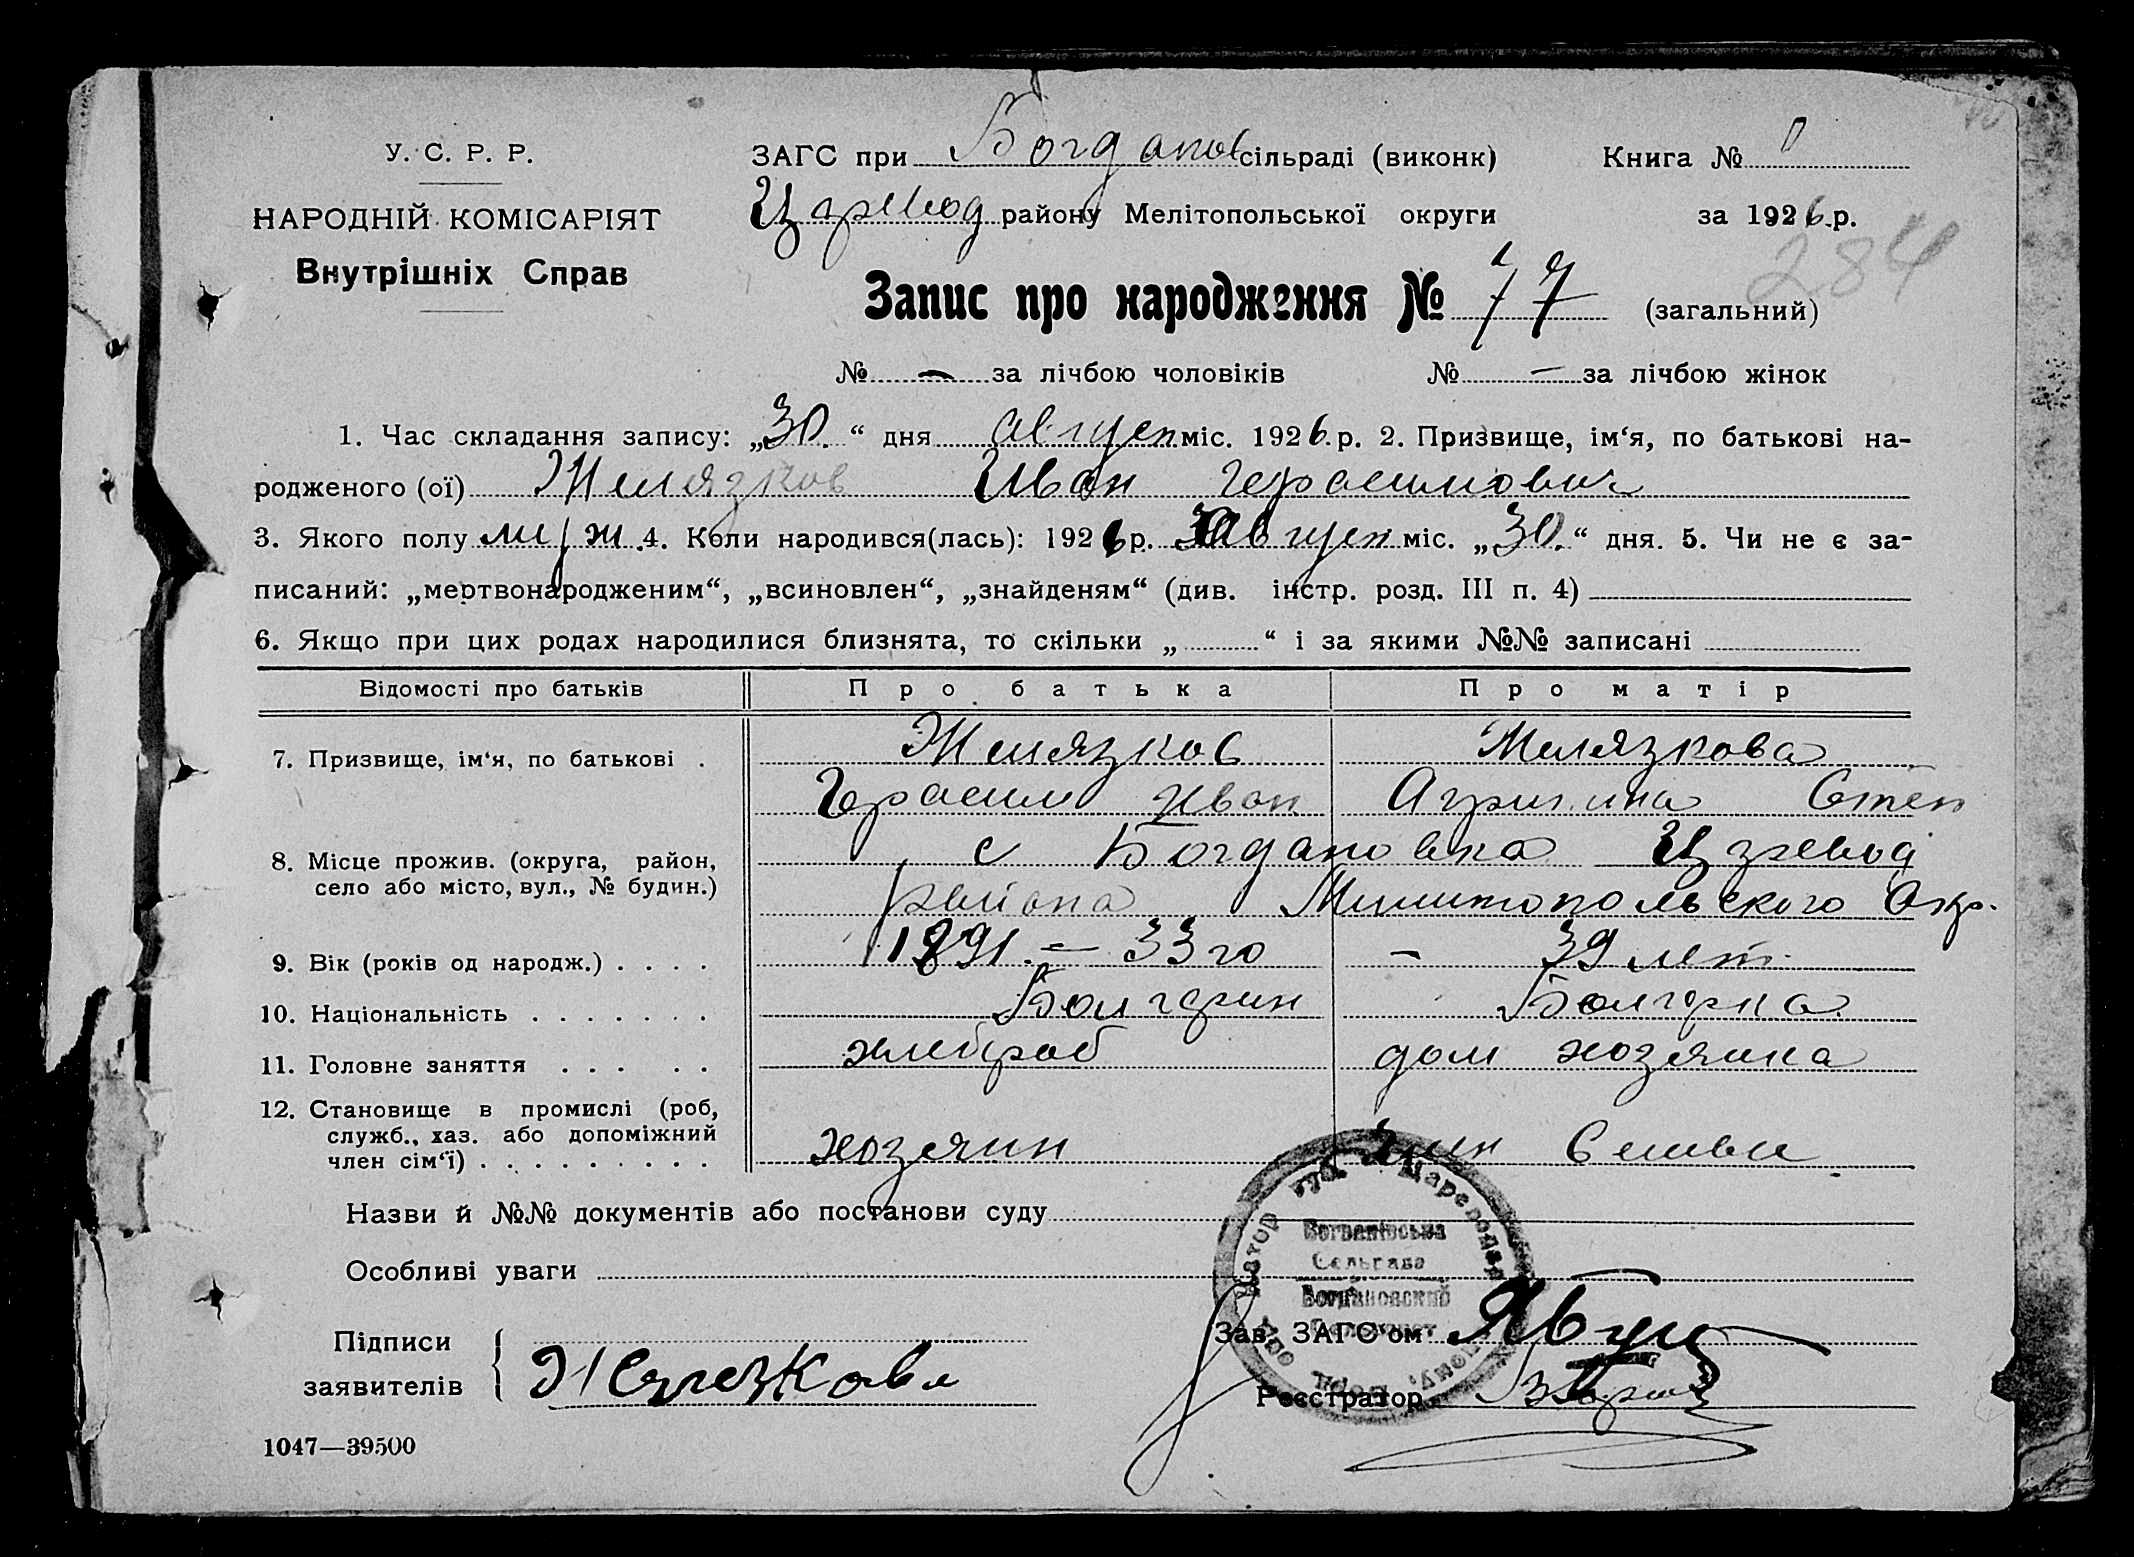 У. С. Р. Р.
НАРОДНІЙ КОМІСАРІЯТ
Внутрішніх Справ
ЗАГС при Богданов сільраді (виконк) Книга №
Царевод району Мелітопольської округи за 1926 р.
284
Запис про народження № 77 (загальний)
№ — за лічбою чоловіків № — за лічбою жінок
1. Час складання запису: „30“ дня август міс. 1926 р. 2. Призвище, ім‘я, по батькові на-
родженого (ої) Желязков Иван Герасимович
3. Якого полу муж. 4. Коли народився(лась): 1926 р. август міс. „30“ дня. 5. Чи не є за-
писаний: „мертвонародженим“, „всиновлен“, „знайденям“ (див. інстр. розд. III п. 4)
6. Якщо при цих родах народилися близнята, то скільки „ “ і за якими №№ записані
Відомості про батьків Про батька Про матір
7. Призвище, ім‘я, по батькові . Желязков Желязкова
Герасим Иван Агрипина Степ
8. Місце прожив. (округа, район, с Богдановка Царевод
село або місто, вул., № будин.) района Мелитопольского Окр.
9. Вік (років од народж.) . . . . 1891. — 33 го — 39 лет.
10. Національність . . . . . . . Болгарин Болгарка
11. Головне заняття . . . . . хлебороб дом хозяика
12. Становище в промислі (роб,
служб., хаз. або допоміжний
член сім‘ї) . . . . . . . . . хозяин член Семьи
Назви й №№ документів або постанови суду
Особливі уваги
Цареводар
Богданівська
Сельрада
Богдановский
Підписи
заявителів
Зав. ЗАГС‘ом
Реєстратор
1047—39500